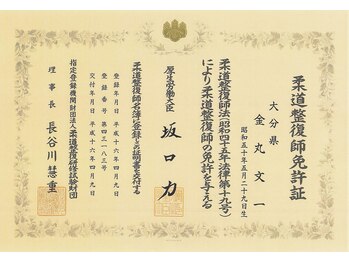 柔道整復師免許証
大分県
金丸文一
昭和五十年五月二十九日生
柔道整復師法(昭和四十五年法律第十九号)
により柔道整復師の免許を与える
厚生労働大臣 坂口力
柔道整復師名簿に登録しこの証明書を交付する
登録年月日 平成十六年四月九日
登録番号 第四三一八三号
交付年月日 平成十六年四月九日
指定登録機関財団法人柔道整復研修試験財団
理事長 長谷川慧重